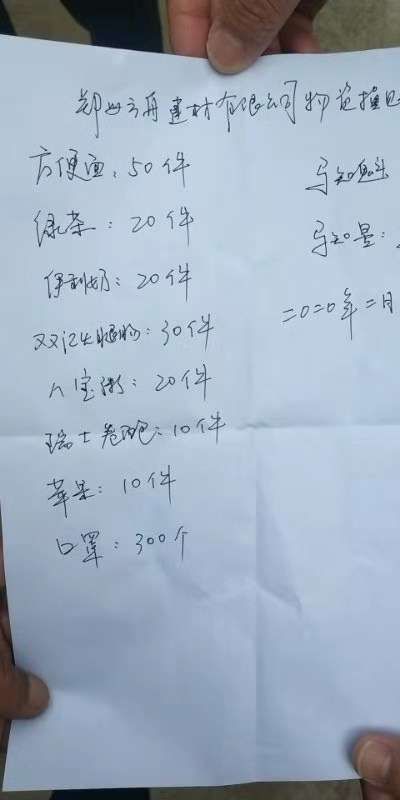 郑州方舟建材有限公司物资捐
方便面：50件
绿茶：20件
伊利奶：20件
双汇火腿肠：30件
八宝粥：20件
瑞士卷吧：10件
苹果：10件
口罩：300个
二〇二〇年二月